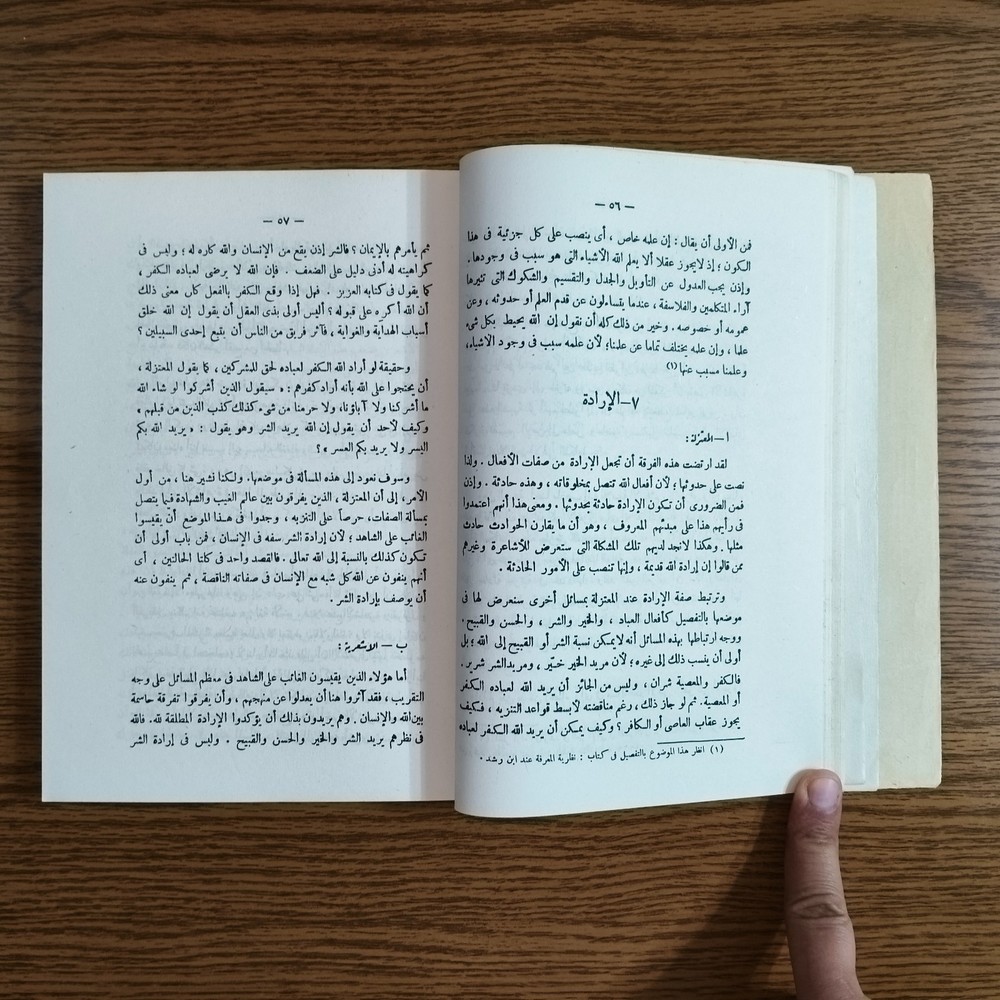 — ٥٦ —
فمن الأولى أن يقال : إن علمه خاص ، أى ينصب على كل جزئية فى هذا
الكون ؛ إذ لايجوز عقلا ألا يعلم الله الأشياء التى هو سبب فى وجودها .
وإذن يجب العدول عن التأويل والجدل والتقسيم والشكوك التى تثيرها
آراء المتكلمين والفلاسفة ، عندما يتساءلون عن قدم العلم أو حدوثه ، وعن
عمومه أو خصوصه . وخير من ذلك كله أن نقول إن الله يحيط بكل شىء
علما ، وإن علمه يختلف تماما عن علمنا؛ لأن علمه سبب فى وجود الأشياء،
وعلمنا مسبب عنها (١)
٧ــ الإرادة
ا — المعتزلة :
لقد ارتضت هذه الفرقة أن تجعل الإرادة من صفات الأفعال . ولذا
نصت على حدوثها ؛ لأن أفعال الله تتصل بمخلوقاته ، وهذه حادثة . وإذن
فمن الضرورى أن تكون الإرادة حادثة بحدوثها . ومعنى هذا أنهم اعتمدوا
فى رأيهم هذا على مبدئهم المعروف ، وهو أن ما يقارن الحوادث حادث
مثلها . وهكذا لانجد لديهم تلك المشكلة التى ستعرض للأشاعرة وغيرهم
ممن قالوا إن إرادة الله قديمة ، وإنها تنصب على الأمور الحادثة .
وترتبط صفة الإرادة عند المعتزلة بمسائل أخرى سنعرض لها فى
موضعها بالتفصيل كأفعال العباد ، والخير والشر ، والحسن والقبيح .
ووجه ارتباطها بهذه المسائل أنه لايمكن نسبة الشر أو القبيح إلى الله ؛ بل
أولى أن ينسب ذلك إلى غيره ؛ لأن مريد الخير خيّر ، ومريد الشر شرير.
فالكفر والمعصية شران ، وليس من الجائز أن يريد الله لعباده الكفر
أو المعصية. ثم لو جاز ذلك ، رغم مناقضته لأبسط قواعد التنزيه ، فكيف
يجوز عقاب العاصى أو الكافر ؟ وكيف يمكن أن يريد الله الكفر لعباده
(١) انظر هذا الموضوع بالتفصيل فى كتاب : نظرية المعرفة عند ابن رشد .
— ٥٧ —
ثم يأمرهم بالإيمان ؟ فالشر إذن يقع من الإنسان والله كاره له ؛ وليس فى
كراهيته له أدنى دليل على الضعف . فإن الله لا يرضى لعباده الكفر ،
كما يقول فى كتابه العزيز . فهل إذا وقع الكفر بالفعل كان معنى ذلك
أن الله أكره على قبوله ؟ أليس أولى بذى العقل أن يقول إن الله خلق
أسباب الهداية والغواية ، فآثر فريق من الناس أن يتبع إحدى السبيلين ؟
وحقيقة لو أراد الله الكفر لعباده لحق للمشركين ، كما يقول المعتزلة ،
أن يحتجوا على الله بأنه أراد كفرهم : « سيقول الذين أشركوا لو شاء الله
ما أشركنا ولا آباؤنا، ولا حرمنا من شىء كذلك كذب الذين من قبلهم »
وكيف لأحد أن يقول إن الله يريد الشر وهو يقول : « يريد الله بكم
اليسر ولا يريد بكم العسر » ؟
وسوف نعود إلى هذه المسألة فى موضعها. ولكنا نشير هنا ، من أول
الأمر، إلى أن المعتزلة ، الذين يفرقون بين عالم الغيب والشهادة فيما يتصل
بمسألة الصفات، حرصاً على التنزيه ، وجدوا فى هذا الموضع أن يقيسوا
الغائب على الشاهد ؛ لأن إرادة الشر سفه فى الإنسان ، فمن باب أولى أن
تكون كذلك بالنسبة إلى الله تعالى . فالقصد واحد فى كلتا الحالتين ، أى
أنهم ينفون عن الله كل شبه مع الإنسان فى صفاته الناقصة ، ثم ينفون عنه
أن يوصف بإرادة الشر .
ب — الأشعرية :
أما هؤلاء الذين يقيسون الغائب على الشاهد فى معظم المسائل على وجه
التقريب ، فقد آثروا هنا أن يعدلوا عن منهجهم ، وأن يفرقوا تفرقة حاسمة
بين الله والإنسان . وهم يريدون بذلك أن يؤكدوا الإرادة المطلقة لله. فالله
فى نظرهم يريد الشر والخير والحسن والقبيح . وليس فى إرادة الشر